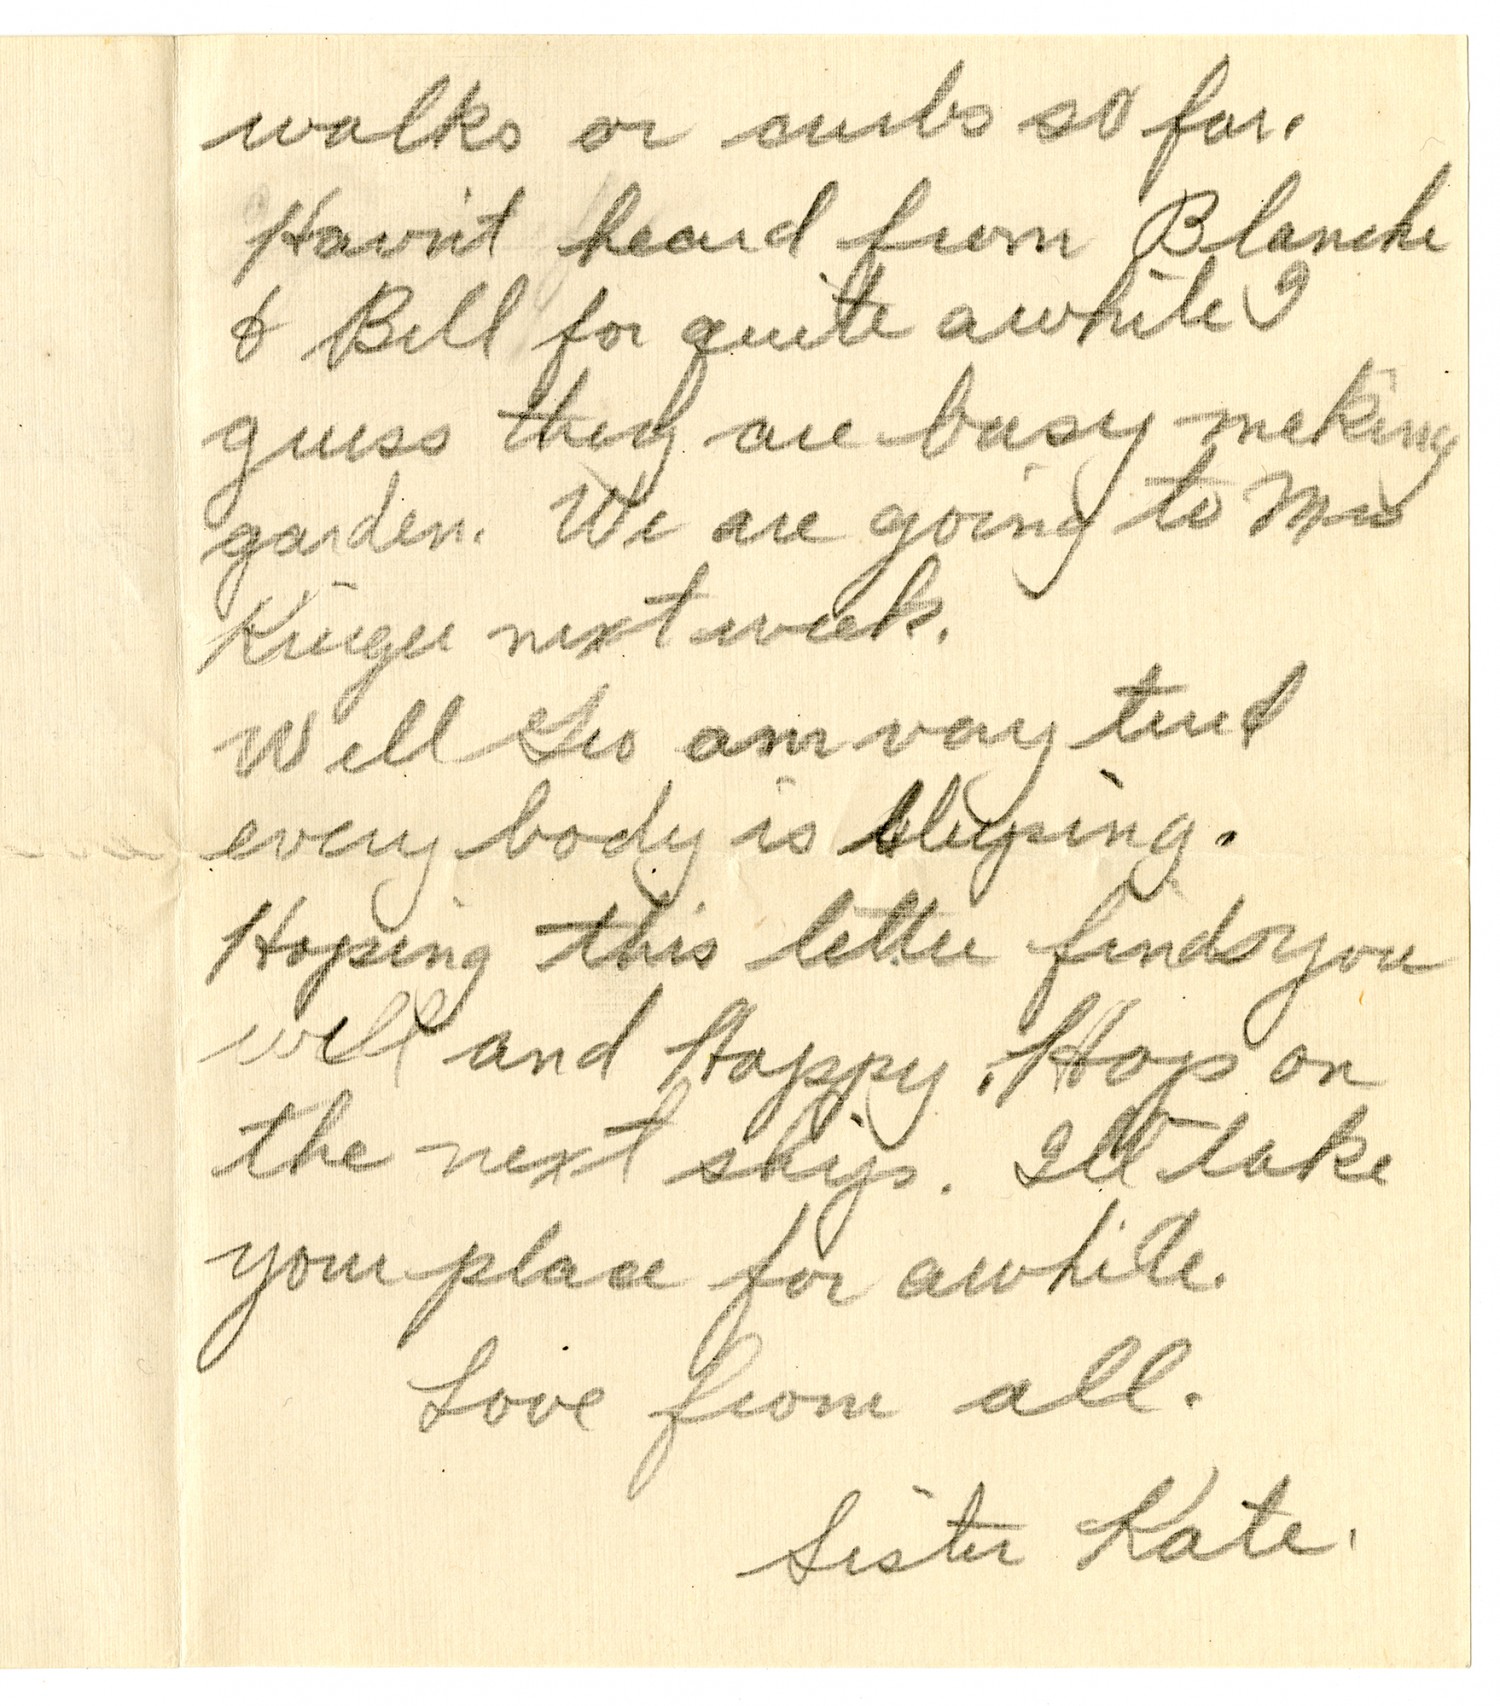 walks or curbs so far.
Havn't heard from Blanche
& Bill for quite awhile?
guess they are busy making
garden. We are going to Mrs
Kruger next week.
Well Geo am very tired
every body is sleeping.
Hoping this letter finds you
well and Happy. Hop on
the next ship. I'll take
your place for awhile.
Love from all.
Sister Kate.